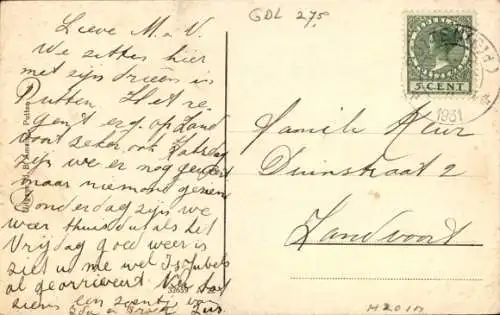 GDL 275
Lieve M. & V.
We zitten hier
met zijn drieën in
Putten. Het re
gent erg op Land
voort zeker ook. Zaterdag
zijn we er nog geweest
maar niemand gezien
Donderdag zijn we
weer thuis dus als het
Vrijdag goed weer is
ziet u me wel
al gearriveerd.
ziens een zoentje van
Zus.
NEDERLAND
5 CENT
1931
Familie Keur
Duinstraat 2
Zandvoort
32659